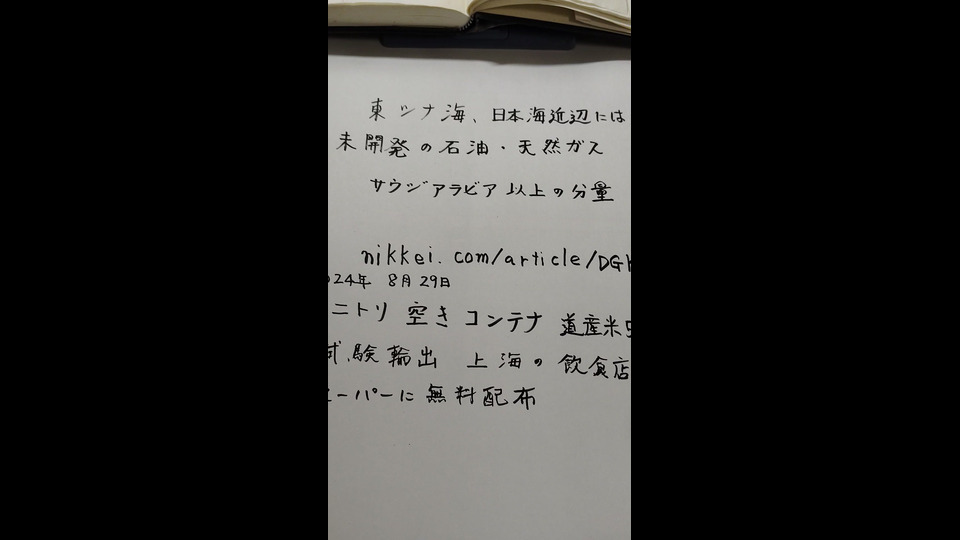 東シナ海、日本海近辺には
未開発の石油・天然ガス
サウジアラビア以上の分量
nikkei.com/article/DG
24年 8月29日
ニトリ 空きコンテナ 道産米
試験輸出 上海の飲食店
ーパーに無料配布